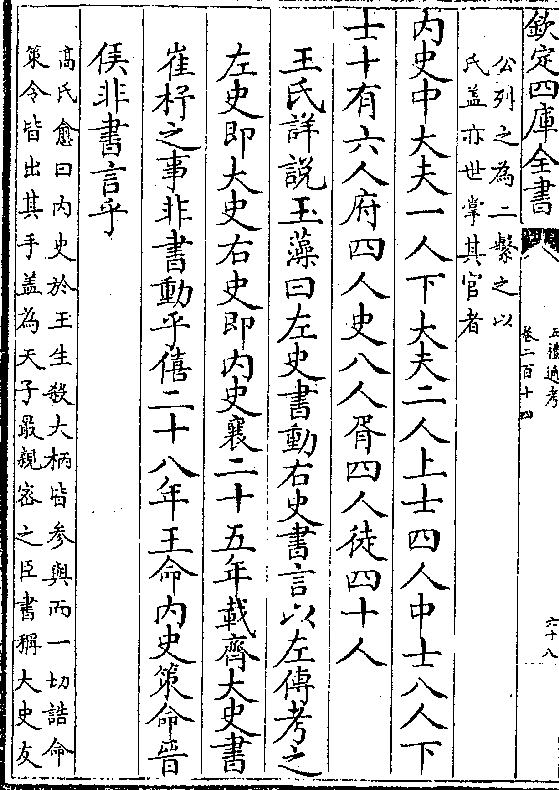 欽定四庫全書
五禮通考
卷二百十四
六十八
公列之為二繫之以
氏蓋亦世掌其官者
内史中大夫一人下大夫二人上士四人中士八人下
士十有六人府四人史八人胥四人徒四十人
王氏詳說玉藻曰左史書動右史書言以左傳考之
左史即大史右史即内史襄二十五年載齊大史書
崔杼之事非書動乎僖二十八年王命内史策命晉
侯非書言乎
高氏愈曰内史於王生殺大柄皆參與而一切誥命
策令皆出其手蓋為天子最親密之臣書稱大史友